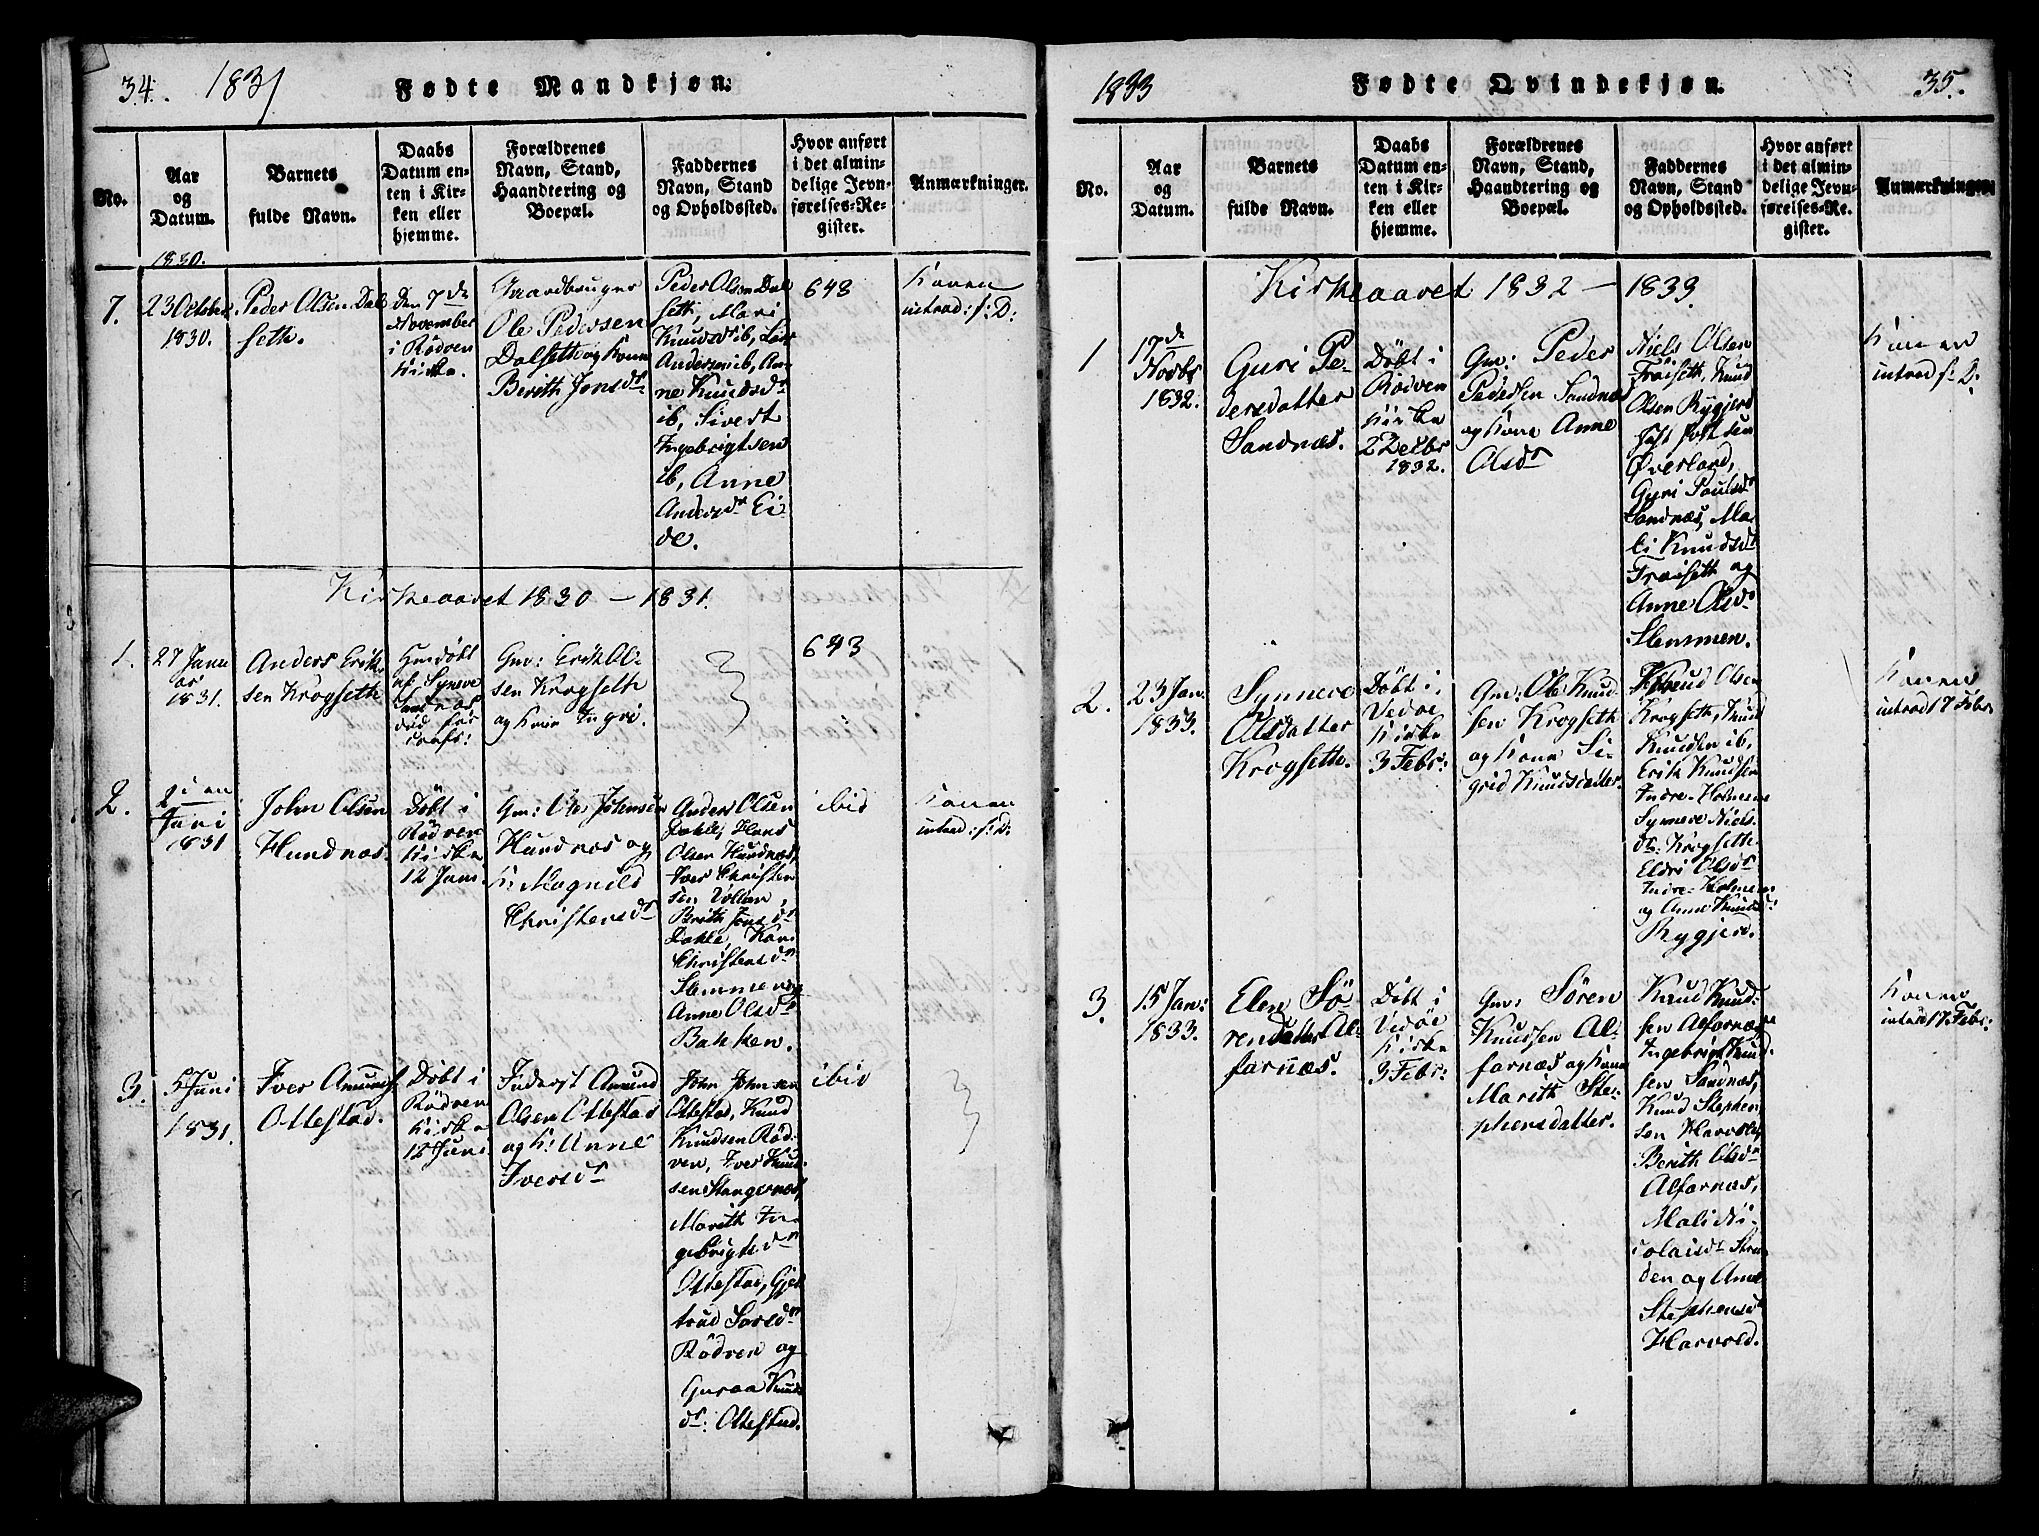 34. 1831 Fødte Mandkjøn.
No.
Aar
og
Datum.
Barnets
fulde Navn.
Daabs
Datum en-
ten i Kir-
ken eller
hjemme.
Forældrenes
Navn, Stand,
Haandtering og
Boepæl.
Faddernes
Navn, Stand
og Opholdssted.
Hvor anført
i det almin-
delige Jevn-
førelses-Re-
gister.
Anmærkninger.
1830.
7.
23 October
1830.
Peder Olsen Dal
seth.
Den 7de
November
i Rødven
Kirke.
Gaardbruger
Ole Pedersen
Dalseth og Kone
Berith Jonsdr
Peder Olsen Dal
seth, Mari
Knudsdr ib, Lars
Andersen ib, An-
ne Knudsdr
ib, Sivert
Ingebrigtsen
ib, Anne
Andersdr Ei-
de.
643
Konen
introd: s: D:
Kirkeaaret 1830 - 1831.
1.
27 Janu
ar
1831.
Anders Erik-
sen Krogseth
Hmdøbt
af Syneve
Sandnæs
død før
Gm: Erik Ol-
sen Krogseth
og Kone Ingri.
643
2.
Juni
1831
John Olsen
Hundnæs.
Døbt i
Rødven
Kirke
12 Juni.
Gm: Ole Johnsen
Hundnæs og
K: Magnild
Christensdr
Anders Olsen
Dahle, Hans
Olsen Hundnæs,
Iver Christen
sen Voldan,
Berith Jonsdr
Dahle, Kari
Christensdr
Slemmen og
Anne Olsdr
Bakken.
ibid
Konen
introd: s: D:
3.
Juni
1831.
Iver Amunds.
Ottestad.
Døbt i
Rødven
Kirke
12 Juni
Inderst Amund
Olsen Ottestad
og K: Anne
Iversdr
John Johnsen
Ottestad, Knud
Knudsen Rød-
ven, Iver Knud-
sen Stangernæs,
Marith In-
gebrigtsdr
Ottestad, Gjer
trud Larsdr
Rødven og
Guroa Knuds
dr: Ottestad.
ibid
1833 Fødte Qvindekjøn. 35.
No.
Aar
og
Datum.
Barnets
fulde Navn.
Daabs
Datum en-
ten i Kir-
ken eller
hjemme.
Forældrenes
Navn, Stand,
Haandtering og
Boepæl.
Faddernes
Navn, Stand
og Opholdssted.
Hvor anført
i det almin-
delige Jevn-
førelses-Re-
gister.
Anmærkninger.
Kirkeaaret 1832 - 1833.
1
17de
Novbr
1832.
Guri Pe-
dersdatter
Sandnæs.
Døbt i
Rødven
Kirke
2 Decbr
1832.
Gm: Peder
Pedersen Sandnæs
og Kone Anne
Olsdr
Niels Olsen
Froiseth, Knud
Olsen Rygjerd
Jost Jostsen
Øverland,
Guri Poulsdr
Sandnæs, Ma-
li Knudsdr
Froiseth og
Anne Olsdr
Slemmen.
Konen
introd s: D:
2.
23 Jan.
1833.
Synneve
Olsdatter
Krogseth.
Døbt i
Vedøe
Kirke
3 Febr:
Gm: Ole Knud-
sen Krogseth
og Kone Si-
grid Knudsdatter.
Knud Olsen
Krogseth, Knud
Knudsen ib,
Erik Knudsen
Indre-Holmene
Synneve Niels-
dr: Krogseth
Eldri Olsdr
Indre-Holmene
og Anne Knudsdr:
Rygjerd.
Konen
introd 17 Febr
3.
15 Jan:
1833.
Elen Sø-
rensdatter Al-
farnæs.
Døbt i
Vedøe
Kirke
3 Febr:
Gm: Søren
Knudsen Al-
farnæs og Kone
Marith Ste-
phensdatter.
Knud Knud-
sen Alfarnæs
Ingebrigt Knud-
sen Sandnæs,
Knud Stephen
sen Harvold,
Berith Olsdr
Alfarnæs,
Mali Ni-
colaisdr Stran-
den og Anne
Stephensdr
Harvold.
Konen
introd 17 Febr: